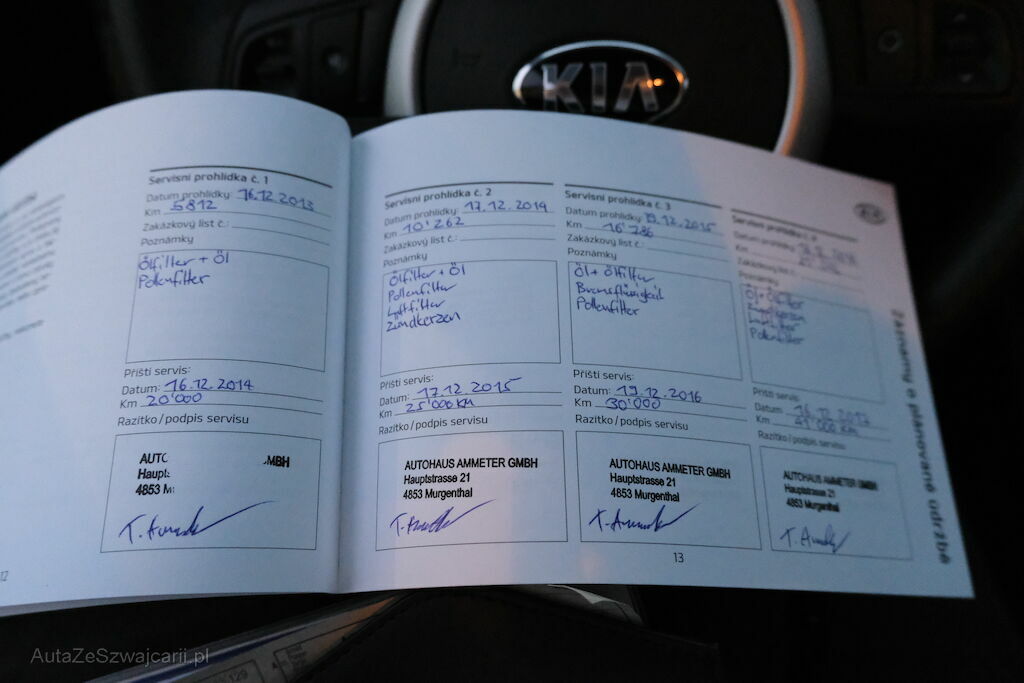 KIA
Servisní prohlídka č. 1
Datum prohlídky: 16.12.2013
Km 5812
Zakázkový list č.:
Poznámky
Ölfilter + Öl
Pollenfilter
Příští servis:
Datum: 16.12.2014
Km 20'000
Razítko/podpis servisu
AUTO MBH
Haupt
4853 M
12
Servisní prohlídka č. 2
Datum prohlídky: 17.12.2014
Km 10'262
Zakázkový list č.:
Poznámky
Ölfilter + Öl
Pollenfilter
Luftfilter
Zündkerzen
Příští servis:
Datum: 17.12.2015
Km 25'000 KM
Razítko/podpis servisu
AUTOHAUS AMMETER GMBH
Hauptstrasse 21
4853 Murgenthal
Servisní prohlídka č. 3
Datum prohlídky 19.12.2015
Km 16'786
Zakázkový list č.:
Poznámky
Öl + Ölfilter
Bremsflüssigkeit
Pollenfilter
Příští servis:
Datum: 19.12.2016
Km 30'000
Razítko/podpis servisu
AUTOHAUS AMMETER GMBH
Hauptstrasse 21
4853 Murgenthal
13
Servisní prohlídka č. 4
Datum prohlídky:
Km
Zakázkový list č.:
Poznámky
Öl + Ölfilter
Zündkerzen
Luftfilter
Pollenfilter
Příští servis:
Datum: 16.12.2017
Km 41'000 KM
Razítko/podpis servisu
AUTOHAUS AMMETER GMBH
Hauptstrasse 21
4853 Murgenthal
Záznamy o plánované údržbě
AutaZeSzwajcarii.pl